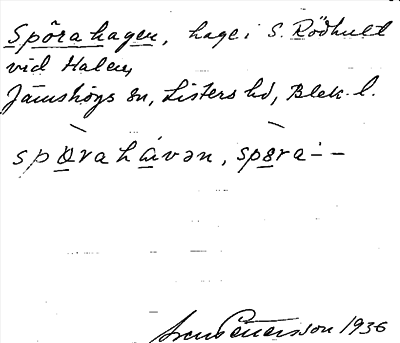 Spörahagen, hage i S. Rödhult
vid Halen,
Jämshögs sn, Listers hd, Blek. l.
spørahávən, spøra-́ -
Sven Petersson 1936